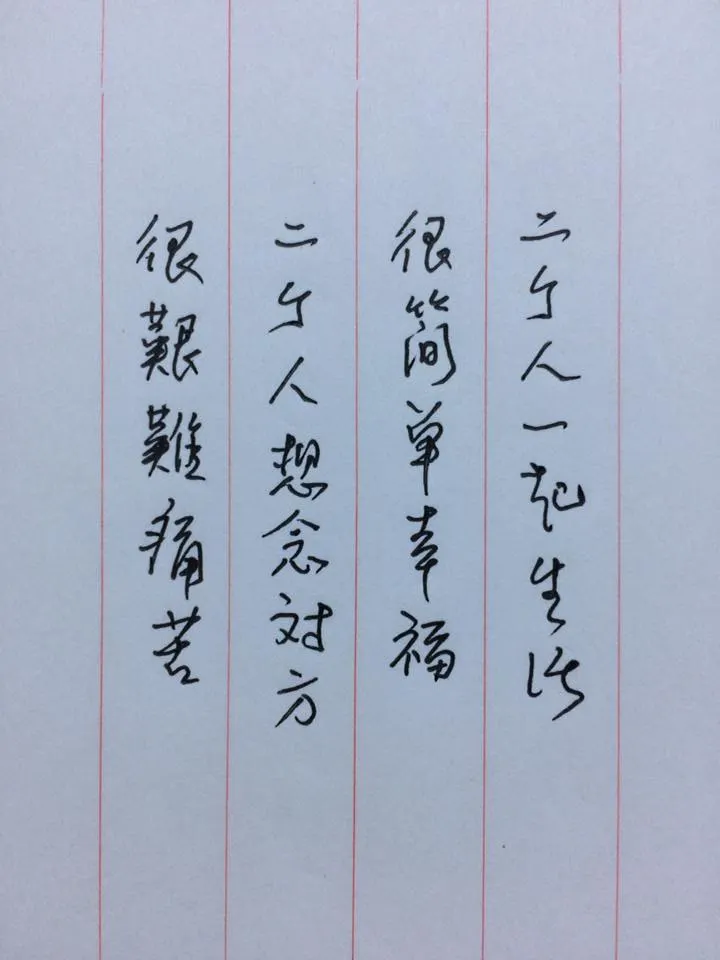 二个人一起生活
很简单幸福
二个人想念对方
很艱難痛苦